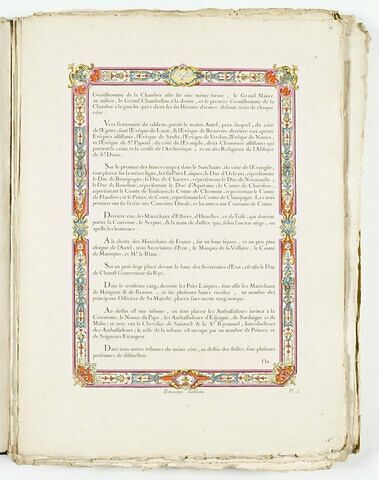 Gentilhomme de la Chambre assis sur une même forme, le Grand Maitre
au milieu, le Grand Chambellan à la droite, et le premier Gentilhomme de la
Chambre à la gauche près deux six Hérauts d'armes, debout, trois de chaque
côté.
Vers l'extrémité du tableau, paroît le maitre Autel, près duquel, du côté
de l'Epitre, sont l'Evêque de Laon, & l'Evêque de Beauvais derriere eux,
Evêques assistans, l'Evêque de Senlis, l'Evêque de Verdun, l'Evêque de Nantes,
et l'Evêque de St Papoul du côté de l'Evangile, deux Chanoines assistans qui
portent la croix et la crosse de l'Archevêque, et un des Religieux de l'Abbaye
de St Denis.
Sur le premier des bancs rangés dans le Sanctuaire, du côté de l'Evangile,
sont placés sur la même ligne, les six Pairs Laiques; le Duc d'Orleans, représentant
le Duc de Bourgogne; le Duc de Chartres, représentant le Duc de Normandie;
le Duc de Bourbon, représentant le Duc d'Aquitaine; le Comte de Charolois,
représentant le Comte de Toulouse; le Comte de Clermont, représentant le Comte
de Flandres; et le Prince de Conty, représentant le Comte de Champagne. Les trois
premiers ont sur la tête une Couronne Ducale, et les autres une Couronne de Comte.
Derriere eux, les Maréchaux d'Estrées, d'Huxelles, et de Tessé, qui doivent
porter la Couronne, le Sceptre, & la main de Justice que, selon l'ancien usage, on
apelle les honneurs.
A la droite des Maréchaux de France, sur un banc séparé, et un peu plus
éloigné de l'Autel, trois Secretaires d'Etat, le Marquis de la Vrilliere, le Comte
de Maurepas, et Mr le Blanc.
Sur un petit siege placé devant le banc des Secretaires d'Etat, est assis le Duc
de Charost Gouverneur du Roy.
Dans le troisieme rang, derriere les Pairs Laiques, sont assis les Maréchaux
de Matignon & de Bezons, et sur plusieurs bancs reculés, un nombre des
principaux Officiers de Sa Majesté, placés sans aucun rang marqué.
Au dessus est une tribune, où sont placés les Ambassadeurs invités à la
Cérémonie, le Nonce du Pape, les Ambassadeurs d'Espagne, de Sardaigne et de
Malte; et avec eux le Chevalier de Sainctot & le Sr Rémond, Introducteurs
des Ambassadeurs, le reste de la tribune est occupé par un nombre de Princes et
de Seigneurs Etrangers.
Dans trois autres tribunes du même côté, au dessus des stalles, sont plusieurs
personnes de distinction.
On
Troisieme Tableau
Pl. 2